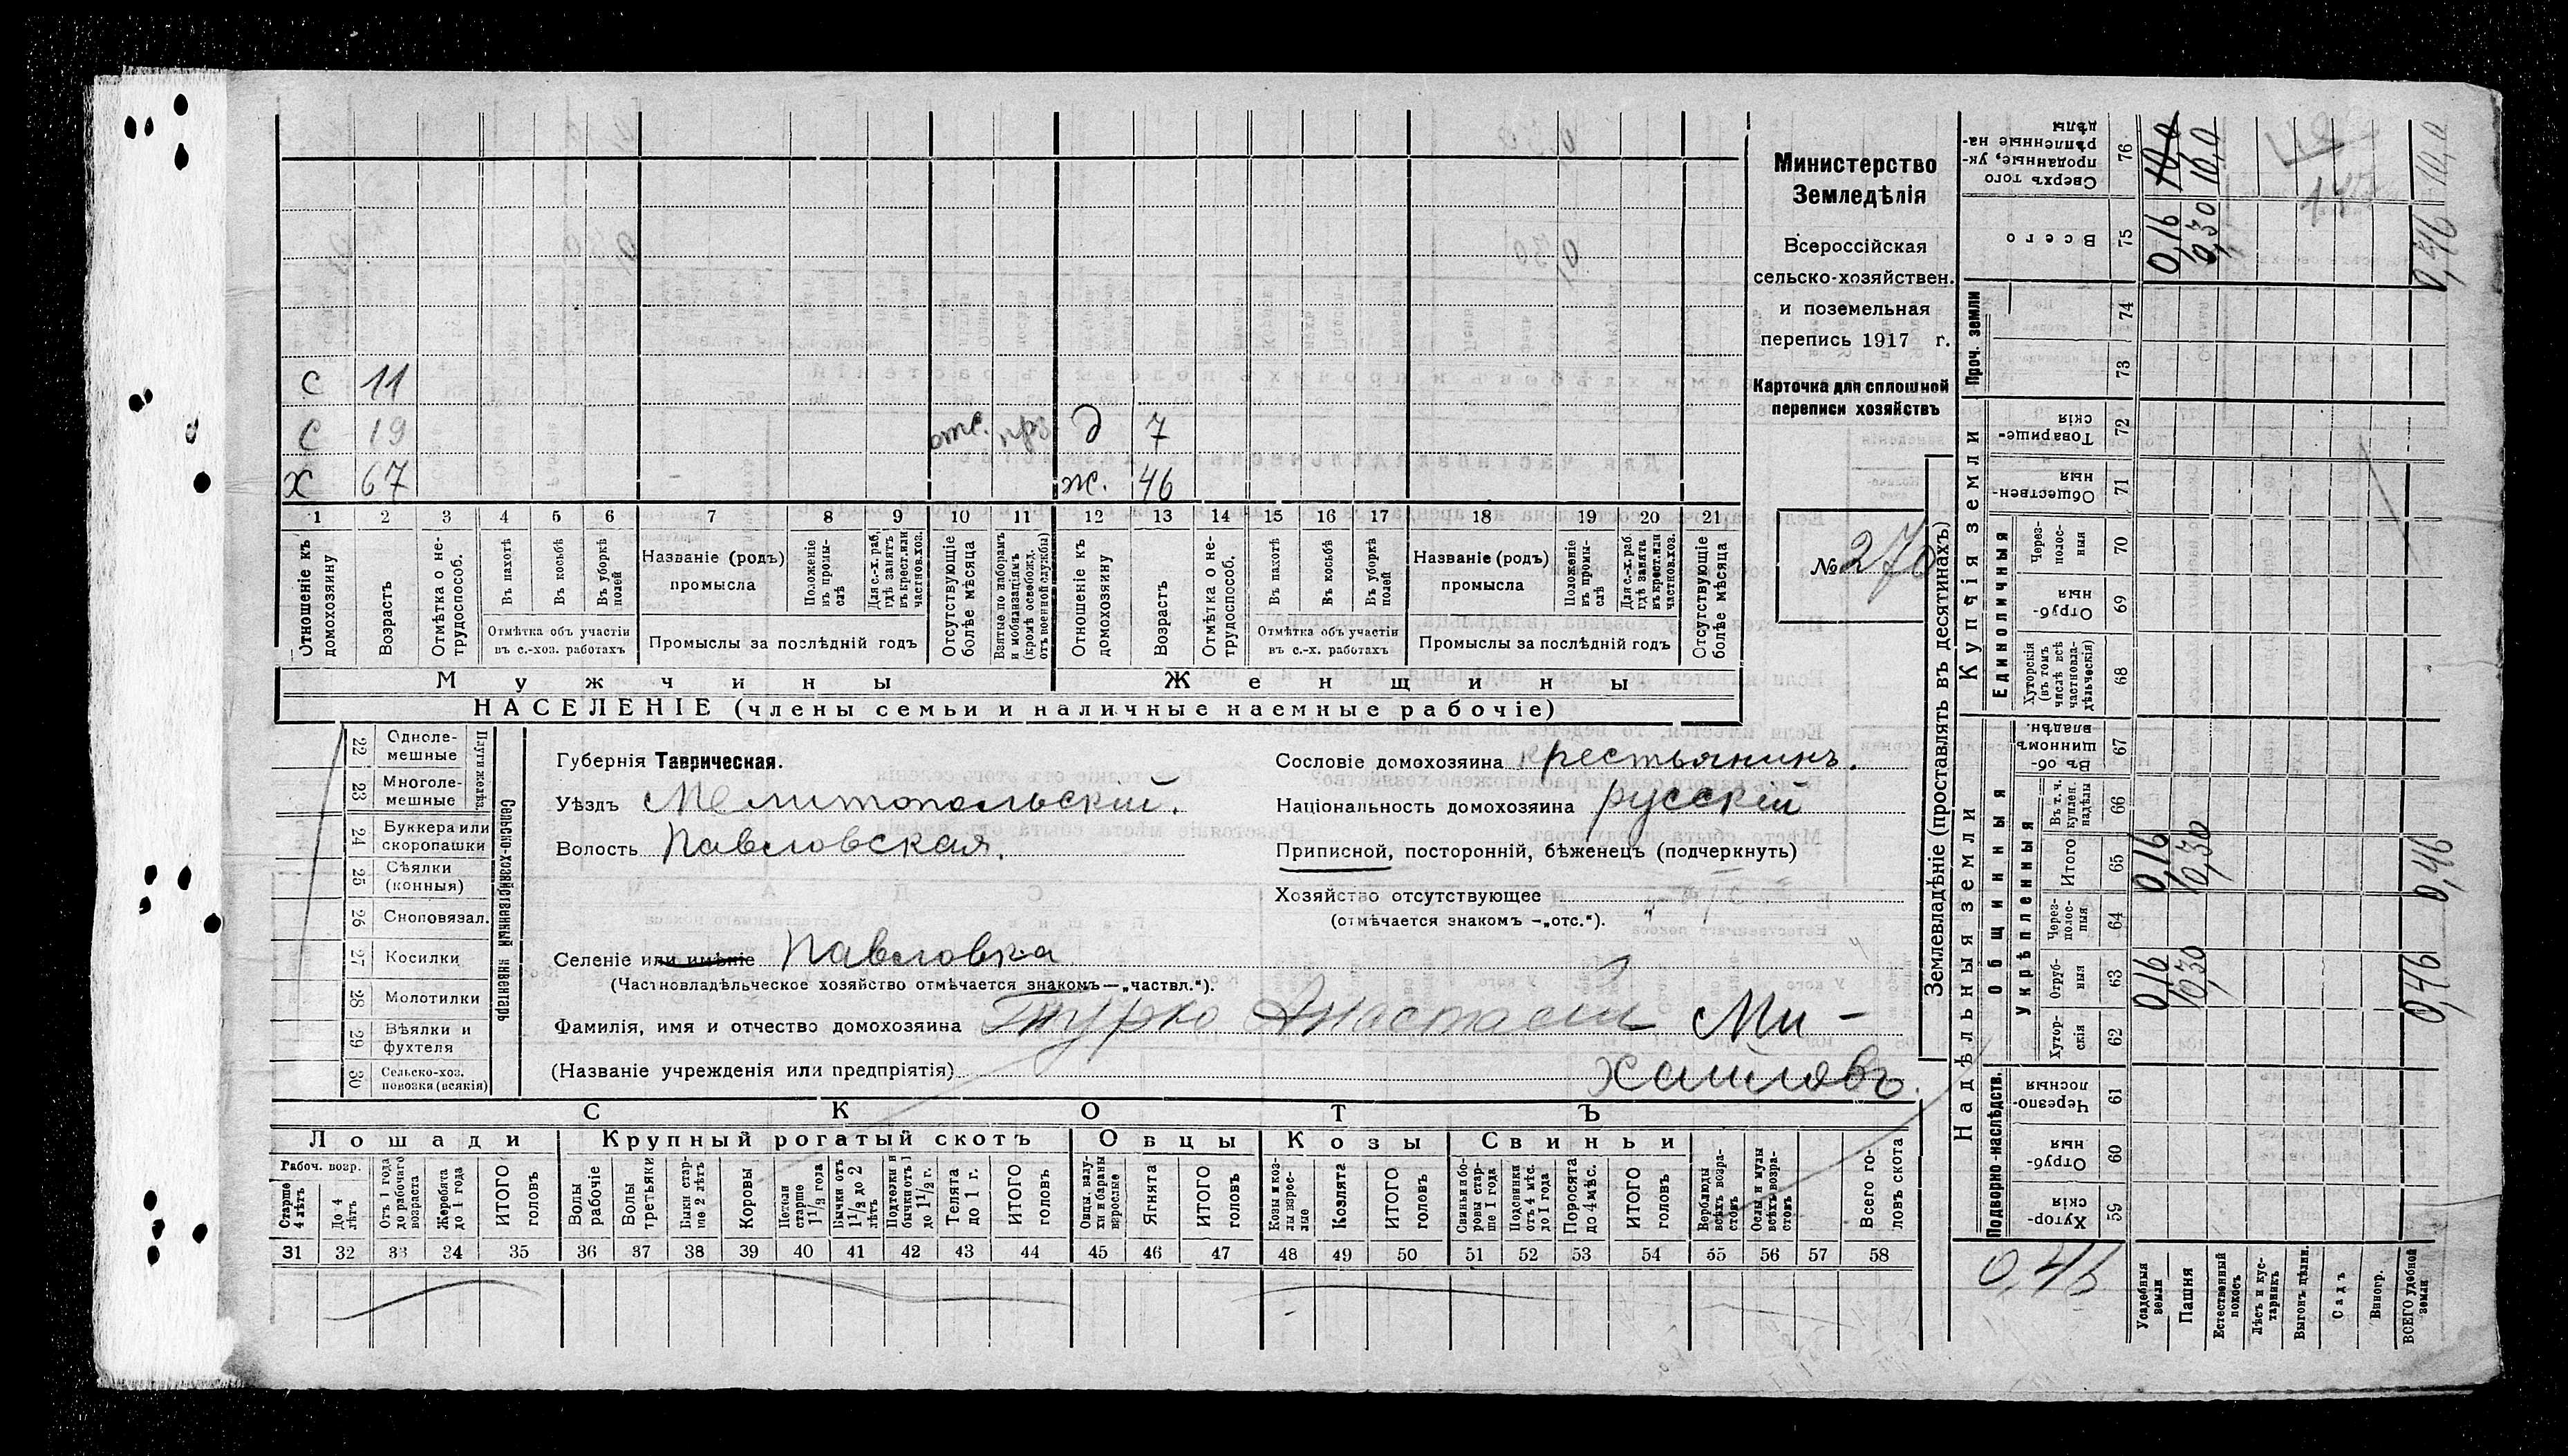 Министерство
Земледѣлія
Всероссійская
сельско-хозяйствен.
и поземельная
перепись 1917 г.
Карточка для сплошной
переписи хозяйствъ
№ 270
С 11
С 19 отс. прз. д 7
Х 67 ж. 46
1 2 3 4 5 6 7 8 9 10 11 12 13 14 15 16 17 18 19 20 21
Отношеніе къ домохозяину
Возрастъ
Отмѣтка о не-трудоспособ.
Въ пахотѣ
Въ косьбѣ
Въ уборкѣ полей
Отмѣтка объ участіи въ с.-хоз. работахъ
Названіе (родъ) промысла
Положеніе въ промы-слѣ
Для с.-х. раб. гдѣ занятъ въ крест. или частнов. хоз.
Промыслы за послѣдній годъ
Отсутствующіе болѣе мѣсяца
Взятые по наборамъ и мобилизаціямъ (кромѣ освобожд. отъ военной службы)
Отношеніе къ домохозяину
Возрастъ
Отмѣтка о не-трудоспособ.
Въ пахотѣ
Въ косьбѣ
Въ уборкѣ полей
Отмѣтка объ участіи въ с.-х. работахъ
Названіе (родъ) промысла
Положеніе въ промы-слѣ
Для с.-х. раб. гдѣ занята въ крест. или частнов. хоз.
Промыслы за послѣдній годъ
Отсутствующіе болѣе мѣсяца
Мужчины Женщины
НАСЕЛЕНІЕ (члены семьи и наличные наемные рабочіе)
Сельско-хозяйственный инвентарь
22 Одноле-мешные
23 Многоле-мешные
24 Буккера или скоропашки
25 Сѣялки (конныя)
26 Сноповязал.
27 Косилки
28 Молотилки
29 Вѣялки и фухтеля
30 Сельско-хоз. повозки (всякія)
Губернія Таврическая.
Уѣздъ Мелитопольскій.
Волость Павловская.
Сословіе домохозяина крестьянинъ.
Національность домохозяина русскій
Приписной, посторонній, бѣженецъ (подчеркнуть)
Хозяйство отсутствующее
(отмѣчается знакомъ —„отс.“).
Селеніе или имѣніе Павловка
(Частновладѣльческое хозяйство отмѣчается знакомъ—„частвл.“).
Фамилія, имя и отчество домохозяина Турко Анастасій Ми-
(Названіе учрежденія или предпріятія) хайловъ.
СКОТЪ
Лошади Крупный рогатый скотъ Овцы Козы Свиньи
Рабоч. возр.
Старше 4 лѣтъ
До 4 лѣтъ
Отъ 1 года до рабочаго возраста
Жеребята до 1 года
ИТОГО головъ
Волы рабочіе
Волы третьяки
Быки стар-ше 2 лѣтъ
Коровы
Нетели старше 1 1/2 года
Бычки отъ 1 1/2 до 2 лѣтъ
Телята до 1 г.
ИТОГО головъ
Ягнята
ИТОГО головъ
Козы и коз-лы взрос-лые
Козлята
ИТОГО головъ
Свиньи и бо-ровы стар-ше 1 года
Подсвинки отъ 4 мѣс. до 1 года
Поросята до 4 мѣс.
ИТОГО головъ
Верблюды всѣхъ возра-стовъ
Ослы и мулы всѣхъ возра-стовъ
Всего го-ловъ скота
31 32 33 34 35 36 37 38 39 40 41 42 43 44 45 46 47 48 49 50 51 52 53 54 55 56 57 58
Землевладѣніе (проставлять въ десятинахъ)
Надѣльныя земли Купчія земли Проч. земли
Подворно-наслѣдств. Общинныя Единоличныя
Укрѣпленныя
59 Хутор-скія
60 Отруб-ныя
61 Черезпо-лосныя
62 Хутор-скія
63 Отруб-ныя 0,16 0,30 0,46
64 Через-полос-ныя
65 Итого 0,16 0,30 0,46
66 Въ т. ч. куплен. надѣлы
67 Въ об-щинномъ владѣн.
68 Хуторскія (въ томъ числѣ всѣ частновла-дѣльческія)
69 Отруб-ныя
70 Через-полос-ныя
71 Обществен-ныя
72 Товарище-скія
73
74
75 Всего 0,16 0,30 0,46
76 Сверхъ того проданные, ук-рѣпленные на-дѣлы 10,0 10,0 10,0
0,46
Усадебныя земли
Пашня
Естественный покосъ
Лѣсъ и кус-тарникъ
Выгонъ цѣлин.
Садъ
Виногр.
ВСЕГО удобной земли